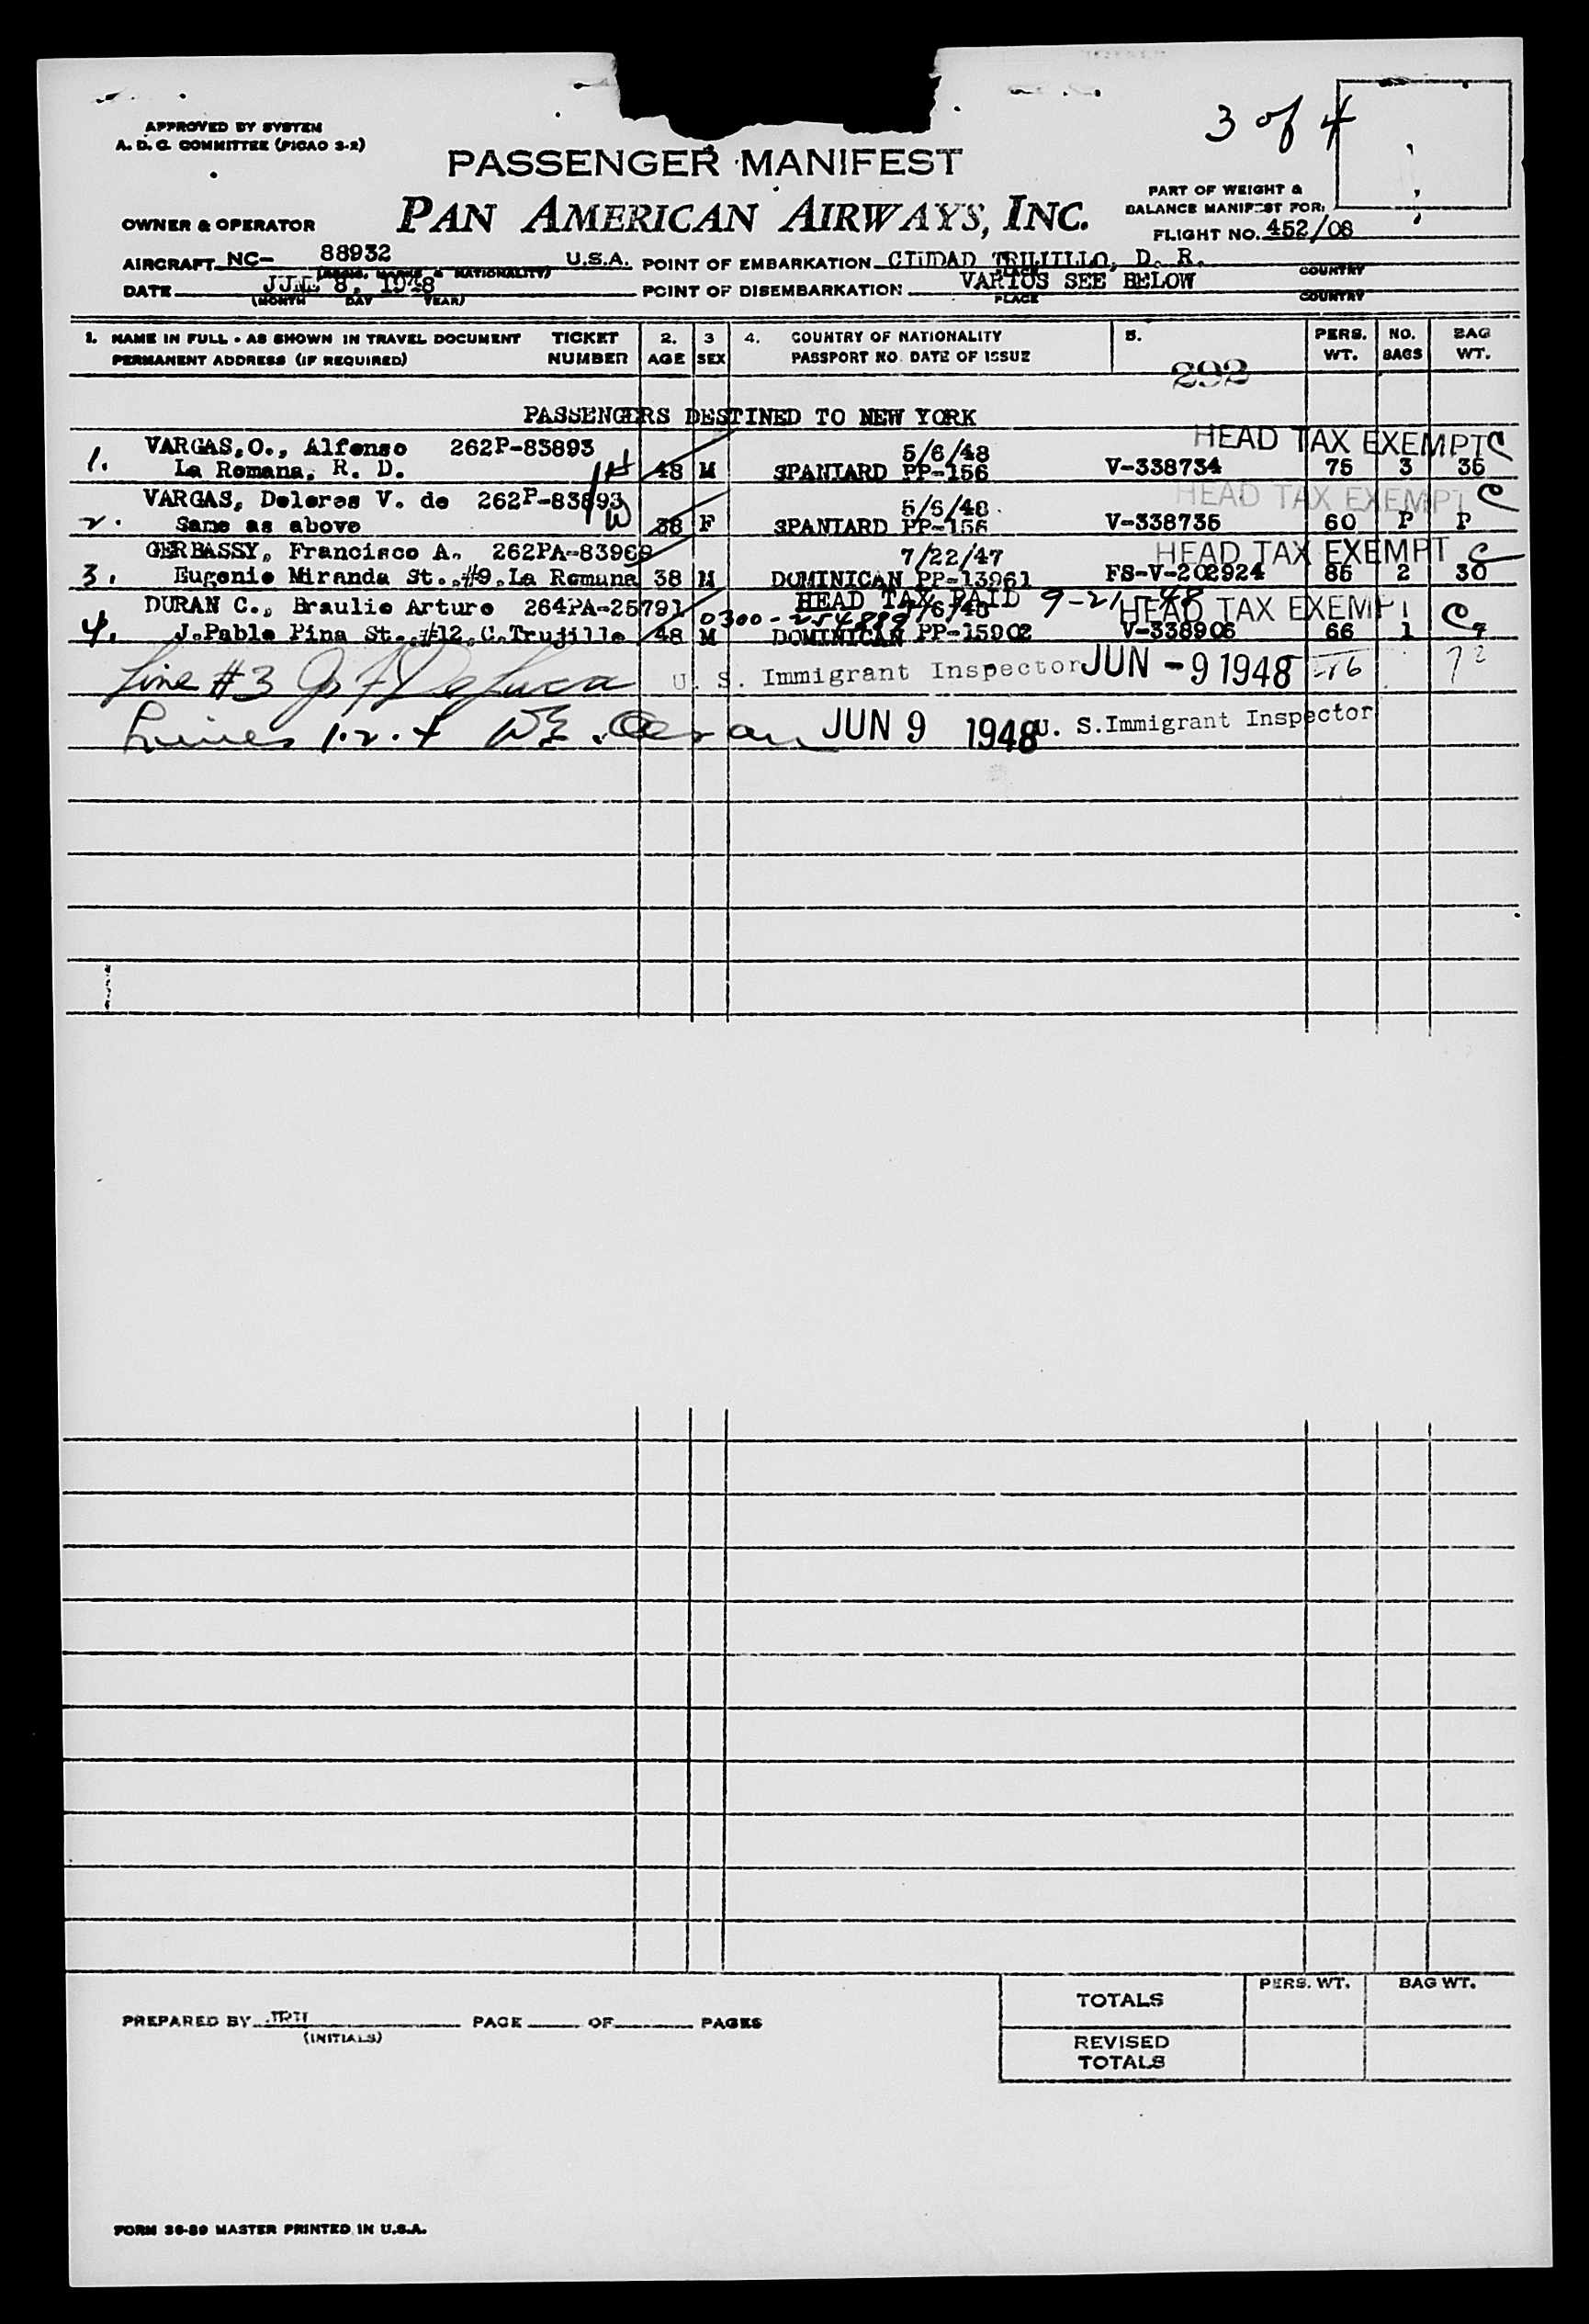 3 of 4
APPROVED BY SYSTEM
A. D. C. COMMITTEE (PICAO 3-2)
PASSENGER MANIFEST
PAN AMERICAN AIRWAYS, INC.
PART OF WEIGHT &
BALANCE MANIFEST FOR:
FLIGHT NO. 452/08
OWNER & OPERATOR
AIRCRAFT NC- 88932 U.S.A. POINT OF EMBARKATION CIUDAD TRUJILLO, D. R.
(REGIS. MARKS & NATIONALITY) PLACE COUNTRY
DATE JUNE 8, 1948 POINT OF DISEMBARKATION VARIOS SEE BELOW
(MONTH DAY YEAR) PLACE COUNTRY
1. NAME IN FULL - AS SHOWN IN TRAVEL DOCUMENT TICKET 2. 3 4. COUNTRY OF NATIONALITY 5. PERS. NO. BAG
PERMANENT ADDRESS (IF REQUIRED) NUMBER AGE SEX PASSPORT NO. DATE OF ISSUE WT. BAGS WT.
292
PASSENGERS DESTINED TO NEW YORK
VARGAS,O., Alfonso 262P-83893 5/6/48 HEAD TAX EXEMPT C
1. La Romana, R. D. H 48 M SPANIARD PP-156 V-338734 75 3 35
VARGAS, Dolores V. de 262P-83893 5/6/48 HEAD TAX EXEMPT C
2. Same as above W 38 F SPANIARD PP-156 V-338735 60 P P
GERBASSY, Francisco A. 262PA-83969 7/22/47 HEAD TAX EXEMPT C
3. Eugenio Miranda St.,#9,La Romana 38 M DOMINICAN PP-13961 FS-V-202924 85 2 30
HEAD TAX PAID 9-21-48
DURAN C., Braulio Arturo 264PA-25791 HEAD TAX EXEMPT C
4. J.Pablo Pina St.,#12,C.Trujillo 48 M DOMINICAN PP-15902 V-338906 66 1
Line #3 U. S. Immigrant Inspector JUN -9 1948 72
Lines 1.2.4 JUN 9 1948 U. S. Immigrant Inspector
PREPARED BY PAGE OF PAGES
(INITIALS)
TOTALS PERS. WT. BAG WT.
REVISED
TOTALS
FORM 36-89 MASTER PRINTED IN U.S.A.